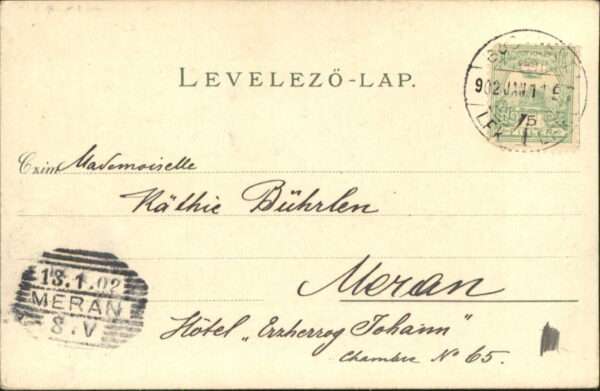 LEVELEZŐ-LAP.
902 JAN 11
5
Czim Mademoiselle
Käthie Bührlen
Meran
Hôtel „Erzherzog Johann"
Chambre No 65.
13.1.02
MERAN
8.V